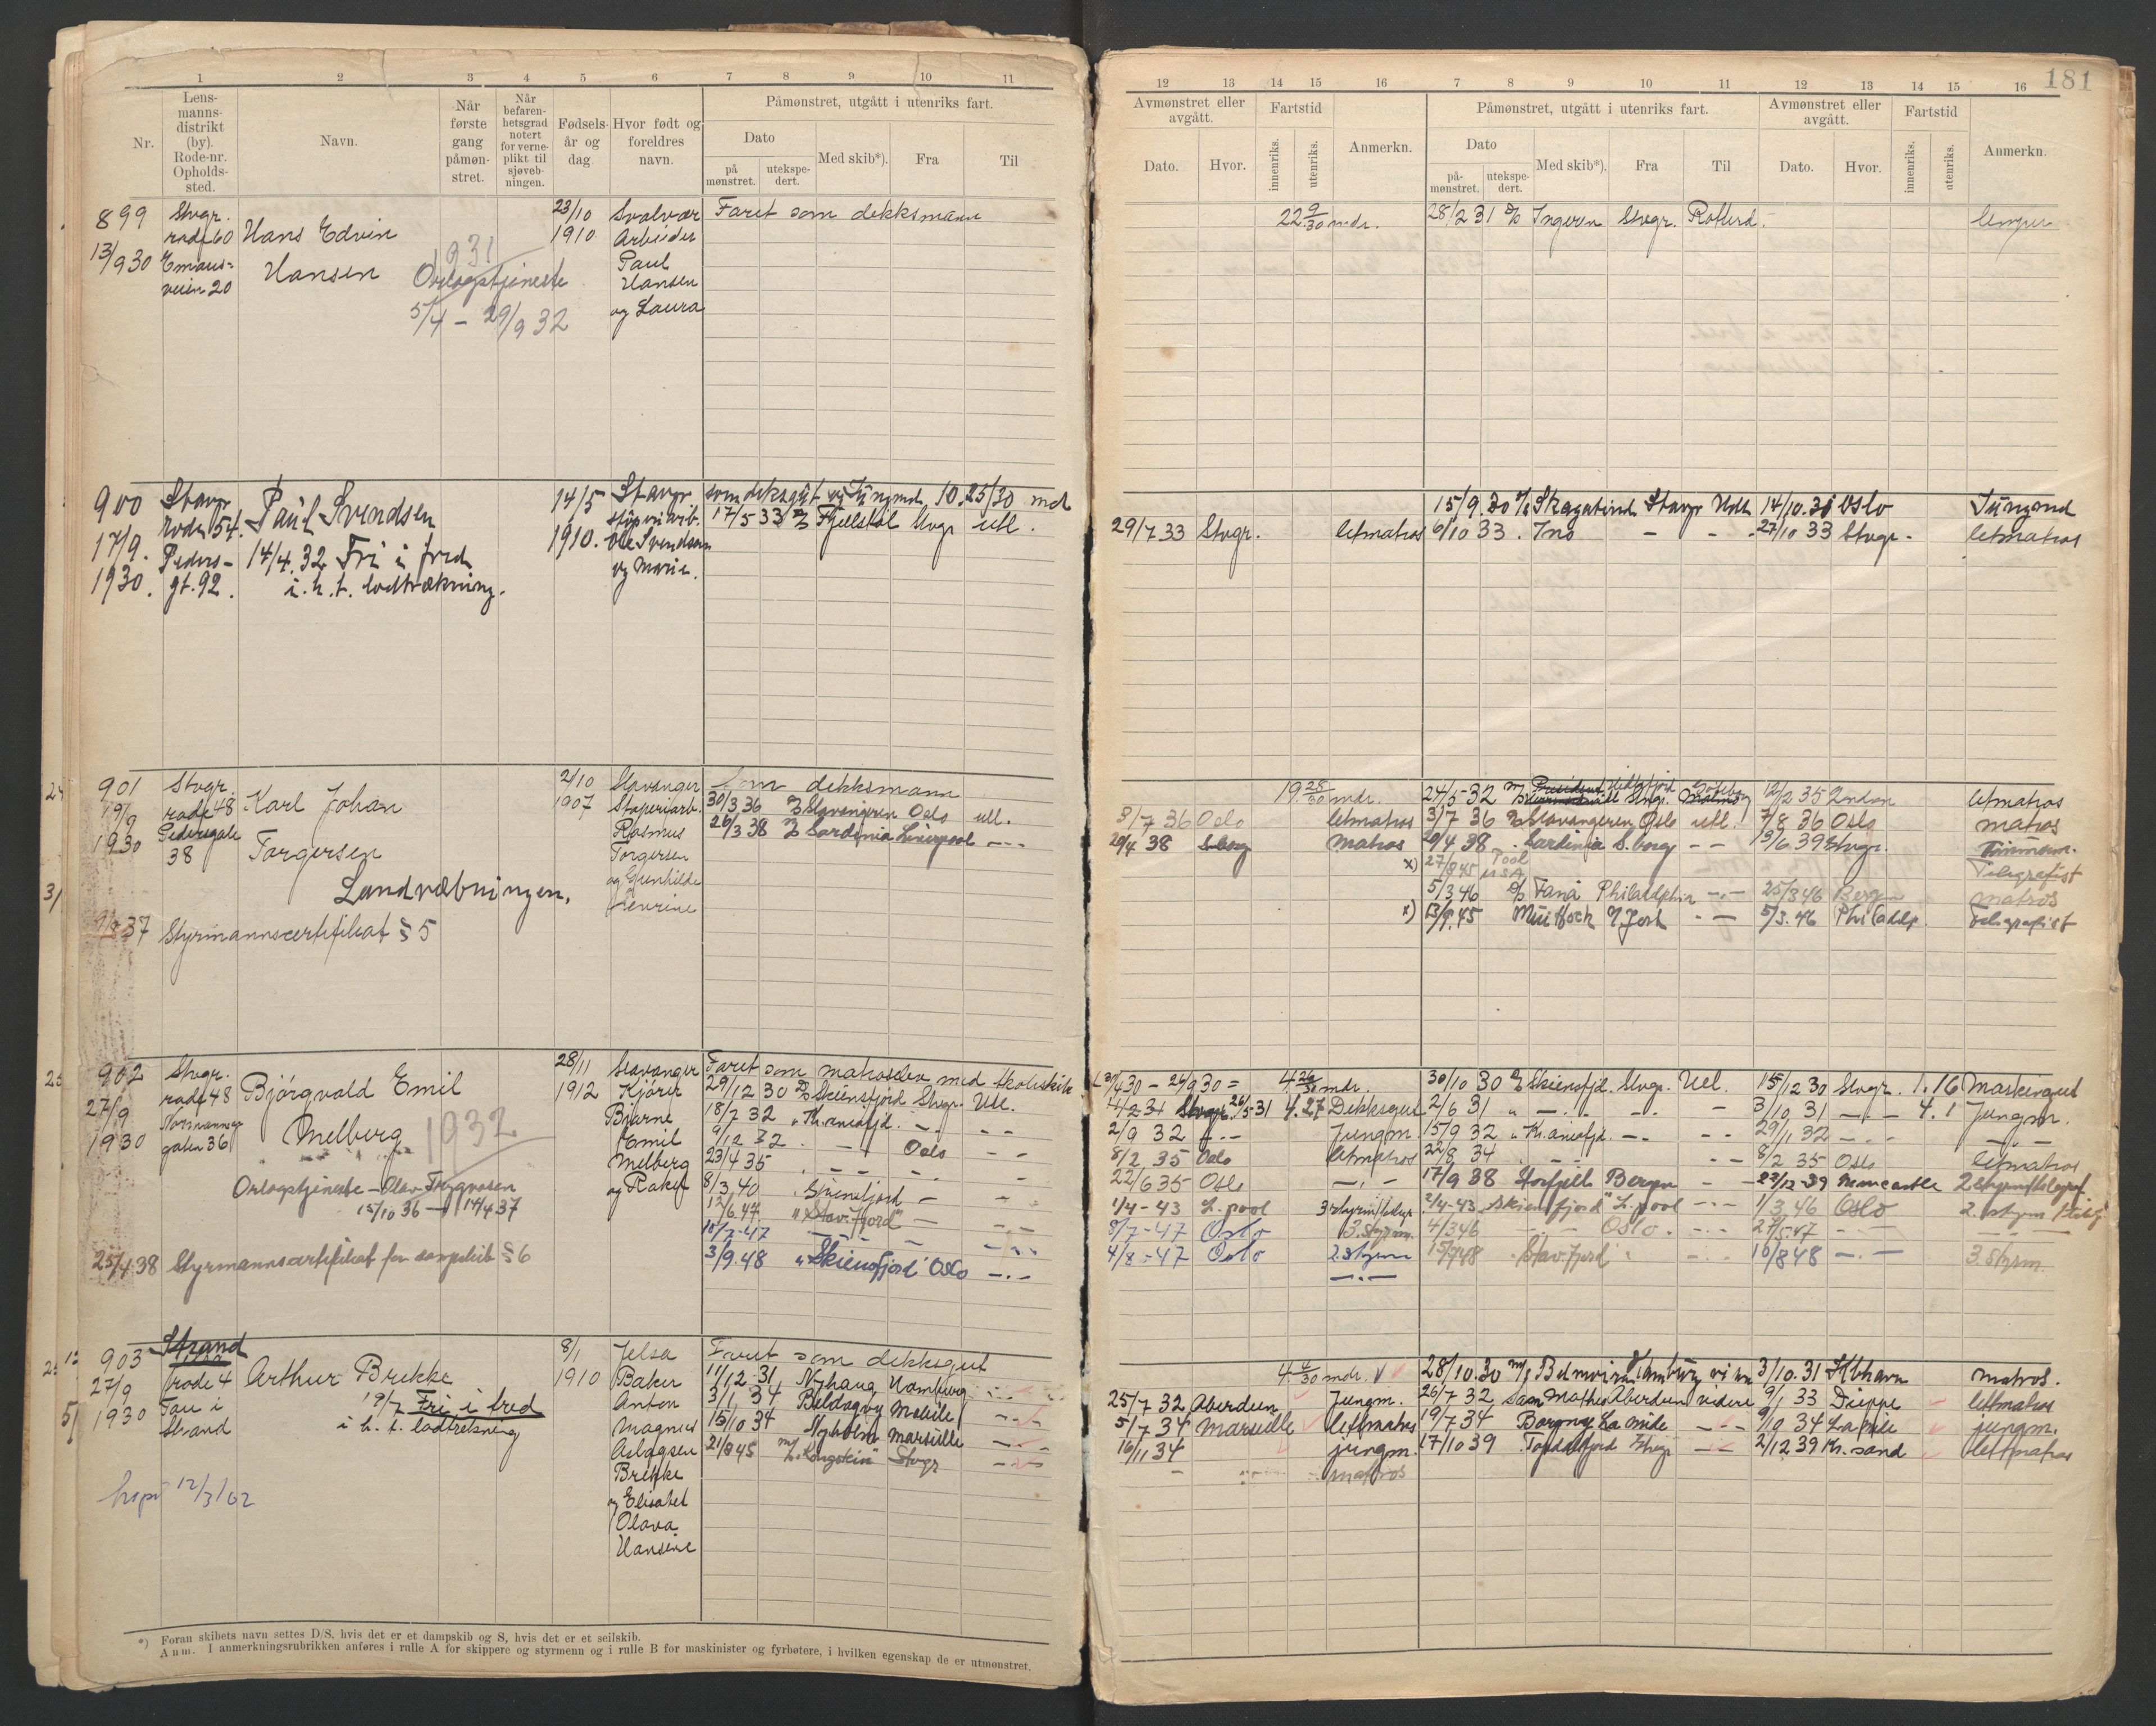 1 2 3 4 5 6 7 8 9 10 11
Nr.
Lens-
manns-
distrikt
(by).
Rode-nr.
Opholds-
sted.
Navn.
Når
første
gang
påmøn-
stret.
Når
befaren-
hetsgrad
notert
for verne-
plikt til
sjøveb-
ningen.
Fødsels-
år og
dag.
Hvor født og
foreldres
navn.
Påmønstret, utgått i utenriks fart.
Dato
på
mønstret.
utekspe-
dert.
Med skib*).
Fra
Til
899
13/9 30
Stvgr.
rode 60
Emaus-
veien 20
Hans Edvin
Hansen
1931
Orlogstjeneste
5/4 - 29/9 32
23/10
1910
Svolvær
Arbeider
Paul
Hansen
og Laura
Faret som dekksmann
900
17/9.
1930.
Stavgr
rode 54.
Peders-
gt. 92.
Paul Svendsen
14/4.32 Fri i fred
i. h. t. lodtrækning.
14/5
1910.
Stavgr
Ole Svendsen
og Marie.
som deksgut og jungmd. 10.25/30 md
17/5 33 Fjellstøl Stvgr utl.
901
19/9
1930
Stvgr.
rode 48
Pedersgate
38
Karl Johan
Torgersen
Landvæbningen.
37 Styrmannscertifikat § 5
2/10
1907
Stavanger
Støperiarb.
Rasmus
Torgersen
og Gunhilde
Severine
Som dekksmann
30/3 36 Stavangeren Oslo utl.
26/3 38 Sardinia Liverpool - - -
902
27/9
1930
Stvgr.
rode 48
gaten 36
Bjørgvald Emil
Melberg
1932
Orlogstjeneste - Olav Trygvason
15/10 36 - 14/4 37
25/4 38 Styrmannscertifikat for § 6
28/11
1912
Stavanger
Kjører
Bjarne
Emil
Melberg
og Rakel
Faret som matroselev med skoleskib
29/12 30 Skiensfjord Stvgr. Utl.
18/7 32 " Kr.aniafjd. - . - - -
9/12 32 - Oslo - -
23/4 35 - - - -
8/3 40
12/6.47. "Stav.fjord" - - -
10/7-47 - - - -
3/9.48 "Skiensfjord" Oslo - . -
903
27/9
1930
Strand
rode 4
Tau i
Strand
Arthur Brekke
19/7 Fri i fred
i h. t. lodtrekning
12/3/62
8/1
1910
Jelsa
Baker
Anton
Magnus
Aslagsen
Brekke
og Elisabet
Olava
Hansine
Faret som dekksgut
11/12 31 Nyhaug Hamburg
3/1 34 Beldagny Mobile
15/10 34 Nyholm Marseille
21/8 45 m/s "Kongstein" Stvgr
*) Foran skibets navn settes D/S, hvis det er et dampskib og S, hvis det er et seilskib.
Anm. I anmerkningsrubrikken anføres i rulle A for skippere og styrmenn og i rulle B for maskinister og fyrbøtere, i hvilken egenskap de er utmønstret.
181
12 13 14 15 16 7 8 9 10 11 12 13 14 15 16
Avmønstret eller
avgått.
Dato.
Hvor.
Fartstid
innenriks.
utenriks.
Anmerkn.
Påmønstret, utgått i utenriks fart.
Dato
på-
mønstret.
utekspe-
dert.
Med skib*).
Fra
Til
Avmønstret eller
avgått.
Dato.
Hvor.
Fartstid
innenriks.
utenriks.
Anmerkn.
22 9/30 mdr. 28/2 31 Ingeren Stvgr. Rotterd. lemper
15/9.30 Skagatind Stavgr Utl. 14/10.31 Oslo Jungmd
29/7 33 Stvgr. letmatros 6/10 33 . Ino - - 27/10 33 Stvgr. letmatros
19 28/30 mdr. 24/5 32 Stvgr. 12/2 35 London letmatros
8/7 36 Oslo letmatros 3/7 36 Stavangeren Oslo utl. 7/8 36 Oslo matros
20/4 38 S.borg Matros 20/4 38 . Sardinia S.borg - - 13/6 39 Stvgr.
x) 27/9 45 Pool USA Telegrafist
5/3 46 Fanå Philadelphia - . - 25/3 46 Bergen matros
x) 13/9.45 York - - 5/3.46 Philadelp. telegrafist
30/4 30 - 26/9 30 = 4 26/30 mdr. 30/10 30 Skiensfjd. Stvgr. Utl. 15/12 30 Stvgr. 1.16 Maskingut
14/2 31 Stvgr. 26/5 31 4.27 Dekksgut 2/6 31 " - . - - . - - 3/10 31 - . - 4.1 Jungm.
2/9 32 - . - Jungm. 15/9 32 " Kr.aniafjd. - . - - - 29/11 32 - . - - . -
8/2 35 Oslo letmatros 22/8 34 - - 8/2 35 Oslo letmatros
22/6 35 Oslo - . - 17/9 38 Storfjell Bergen - 22/12-39 Newcastle 2 styrm/telegraf.
1/4-43 L.pool 3 styrm/telegr 2/4-43 Skiensfjord" L.pool - - 1/3.46 Oslo 2. styrm
8/7-47 Oslo 3. styrm. 4/3 46 - - Oslo - . - 27/5-47 - -
4/8-47 Oslo 2. styrm 15/9 48 Stav.fjord - . - 10/8 48 - . - 3. styrm
- . -
4 4/30 mdr. 28/10.30 m/s Hamburg 3/10.31 Kbhavn matros.
25/7 32 Aberdeen Jungm. 26/7 32 San Mathes Aberdeen videre 9/1 33 Dieppe letmatros
5/7 34 Marseille lettmatros 19/7 34 Borgny La Mide - . - 9/10 34 La Mide jungm.
16/11 34 jungm. 17/10 39 Topdalsfjord Stvgr 2/12 39 Kr.sand lettmatros
matros